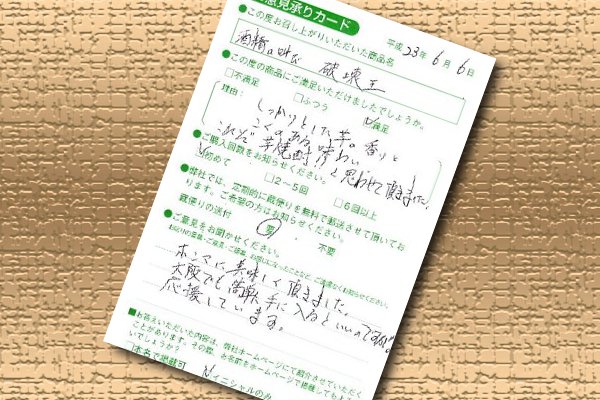 意見承りカード
平成23年6月6日
●この度お召し上がりいただいた商品名
破壊王
●この度の商品にご満足いただけましたでしょうか。
□不満足 □ふつう ☑満足
理由:
しっかりとした芋の香りと
こくのある味わい
これぞ芋焼酎 と思わせて頂きました。
●ご購入回数をお知らせください。
☑初めて □2~5回 □6回以上
●弊社では、定期的に蔵便りを無料で郵送させて頂いてお
ります。ご希望の方はお知らせください。
蔵便りの送付 要 ・ 不要
●ご意見をお聞かせください。
ホンマに美味しく頂きました。
大阪でも 手に入るといいのですが。
応援しています。
■お答えいただいた内容は、弊社ホームページにて紹介させていただく
ことがあります。その際、お名前をホームページで掲載してもよ
いでしょうか?
□本名で掲載可 ☑イニシャルのみ